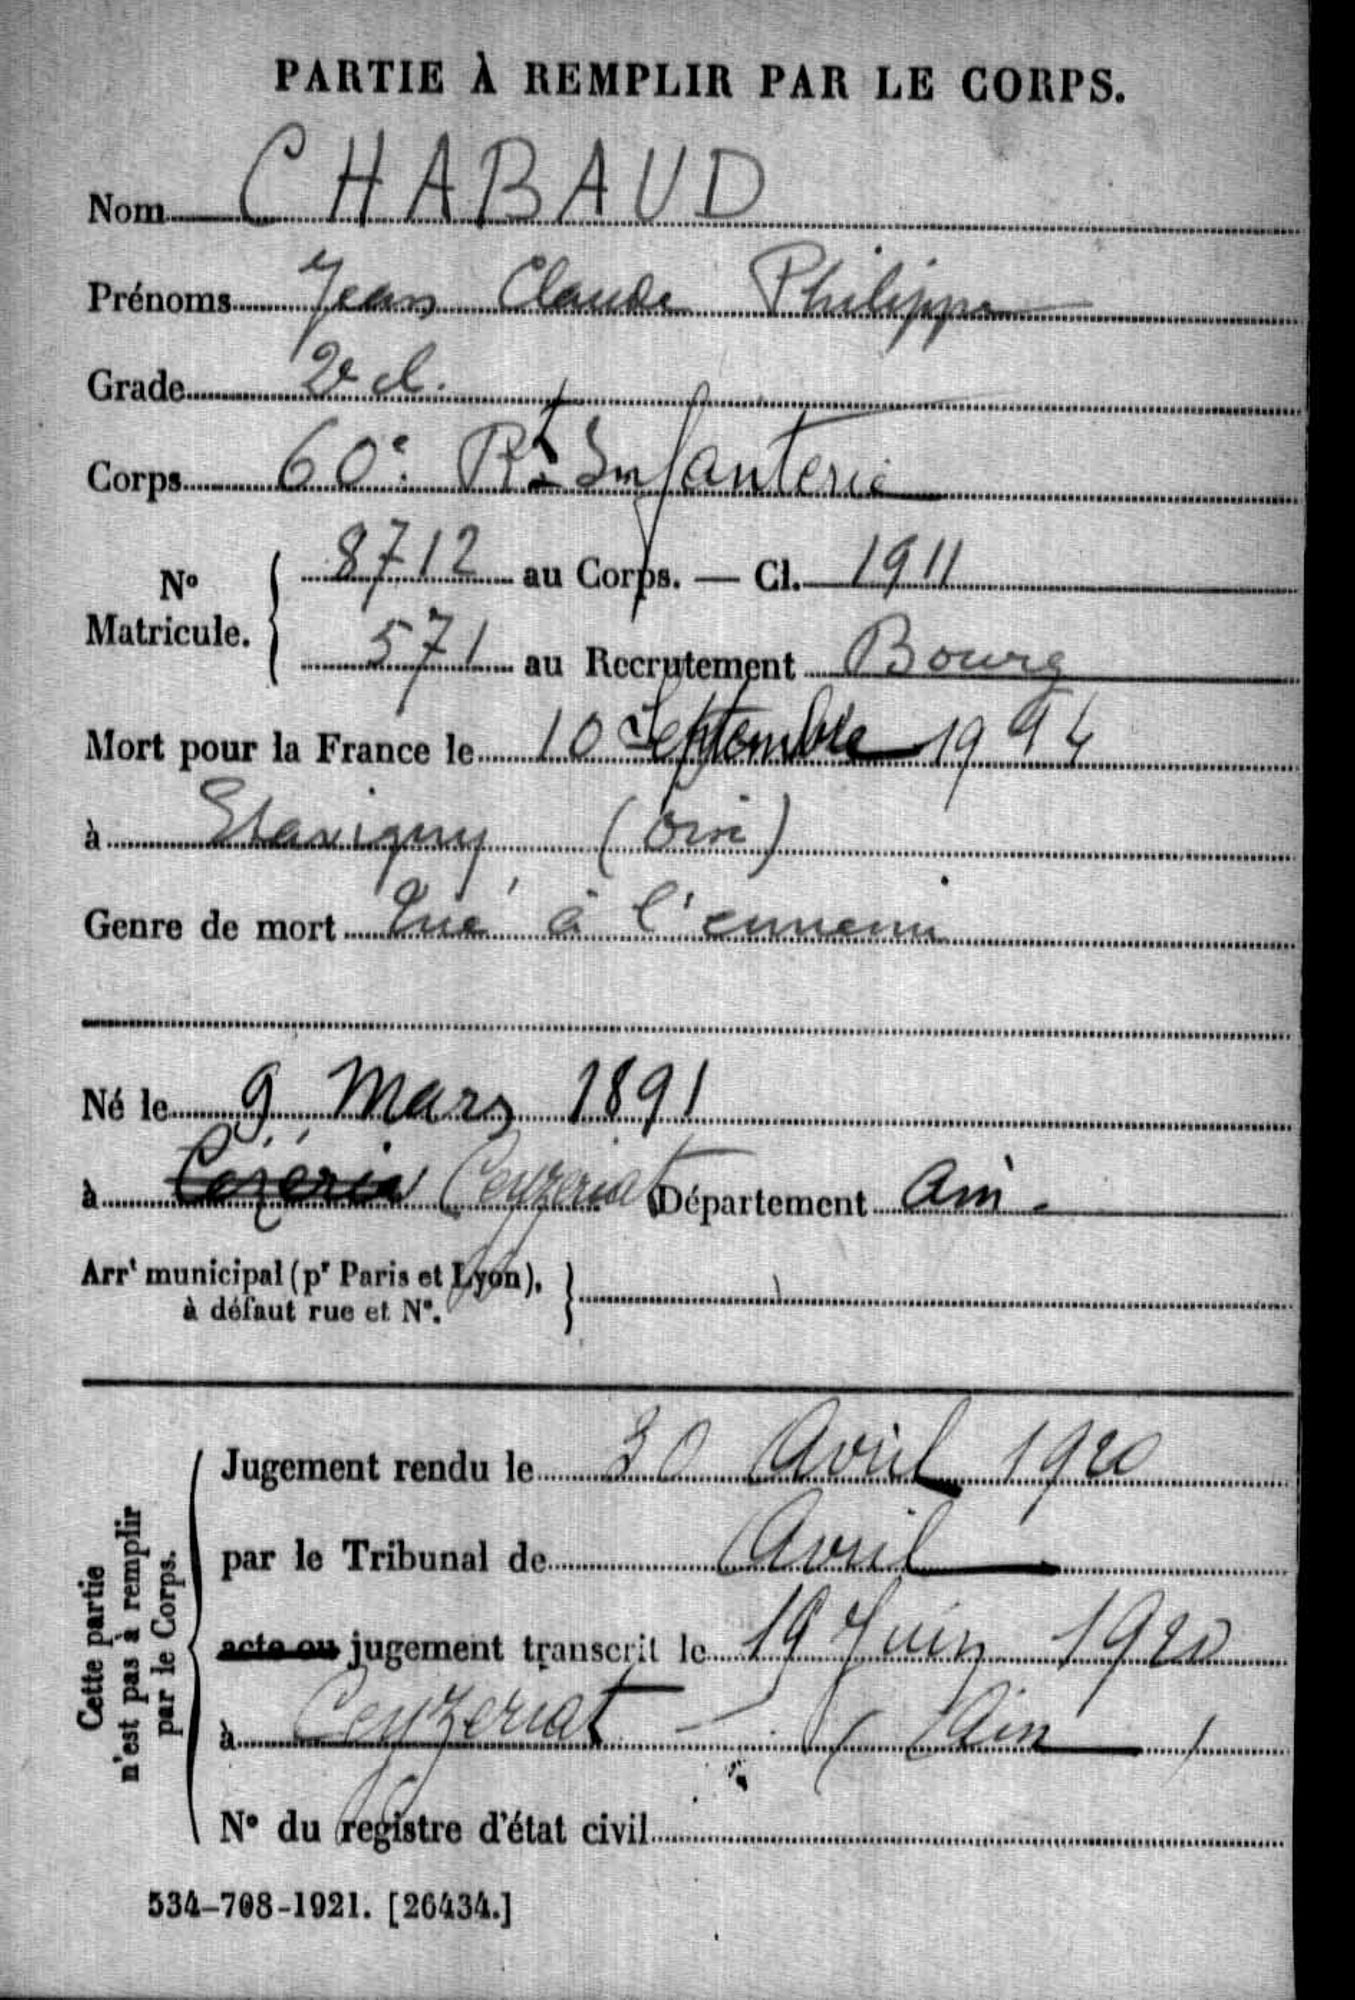 PARTIE À REMPLIR PAR LE CORPS.
Nom CHABAUD
Prénoms Jean Claude Philippe
Grade 2e cl.
Corps 60e Rt Infanterie
No Matricule. 8712 au Corps. — Cl. 1911
571 au Recrutement Bourg
Mort pour la France le 10 Septembre 1914
à Etavigny (Oise)
Genre de mort Tué à l'ennemi
Né le 9 Mars 1891
à Cezériat Département Ain
Arrt municipal (pr Paris et Lyon), à défaut rue et No.
Cette partie n'est pas à remplir par le Corps.
Jugement rendu le 30 Avril 1920
par le Tribunal de Avril
acte ou jugement transcrit le 19 Juin 1920
à Ceyzeriat (Ain)
No du registre d'état civil
534-708-1921. [26434.]